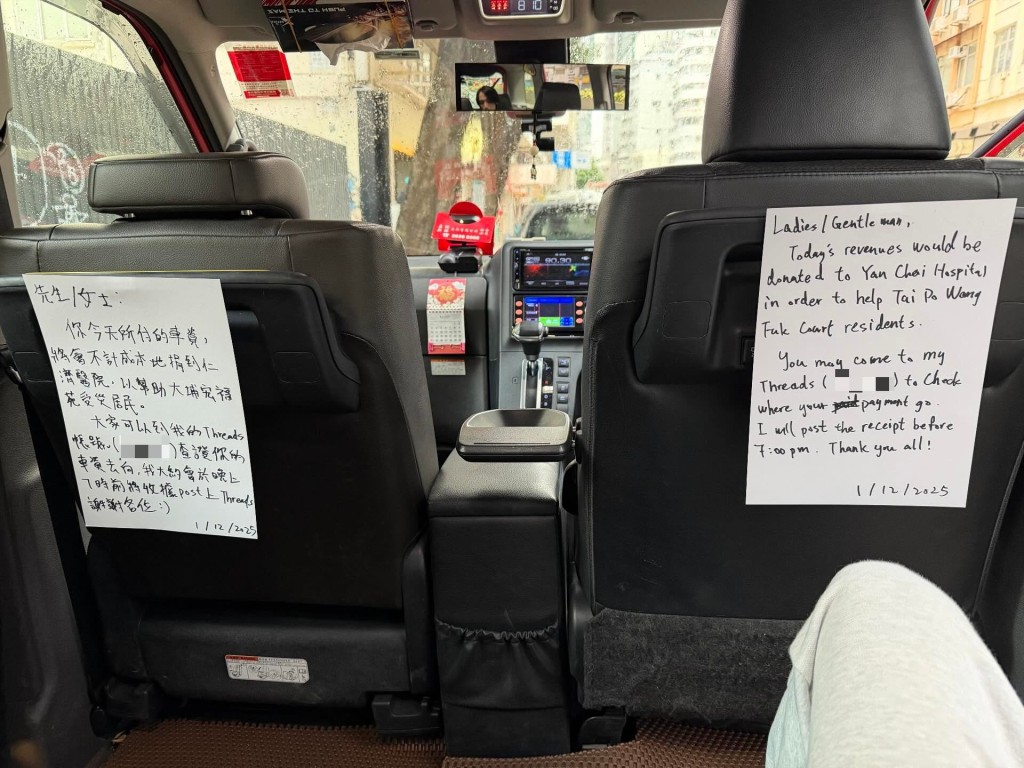 PUSH TO THE MAX
810
80.30
先生/女士:
你今天所付的車費,
將會不計成本地捐到仁
濟醫院,以幫助大埔宏福
苑受災居民。
大家可以到我的Threads
帳號,(
)查證你的
車費去向,我大約會於晚上
7時前將收據post上Threads
謝謝各位:)
1/12/2025
Ladies/Gentleman,
Today's revenues would be
donated to Yan Chai Hospital
in order to help Tai Po Wang
Fuk Court residents.
You may come to my
Threads (
) to Check
where your paid payment go.
I will post the receipt before
7:00pm. Thank you all!
1/12/2025